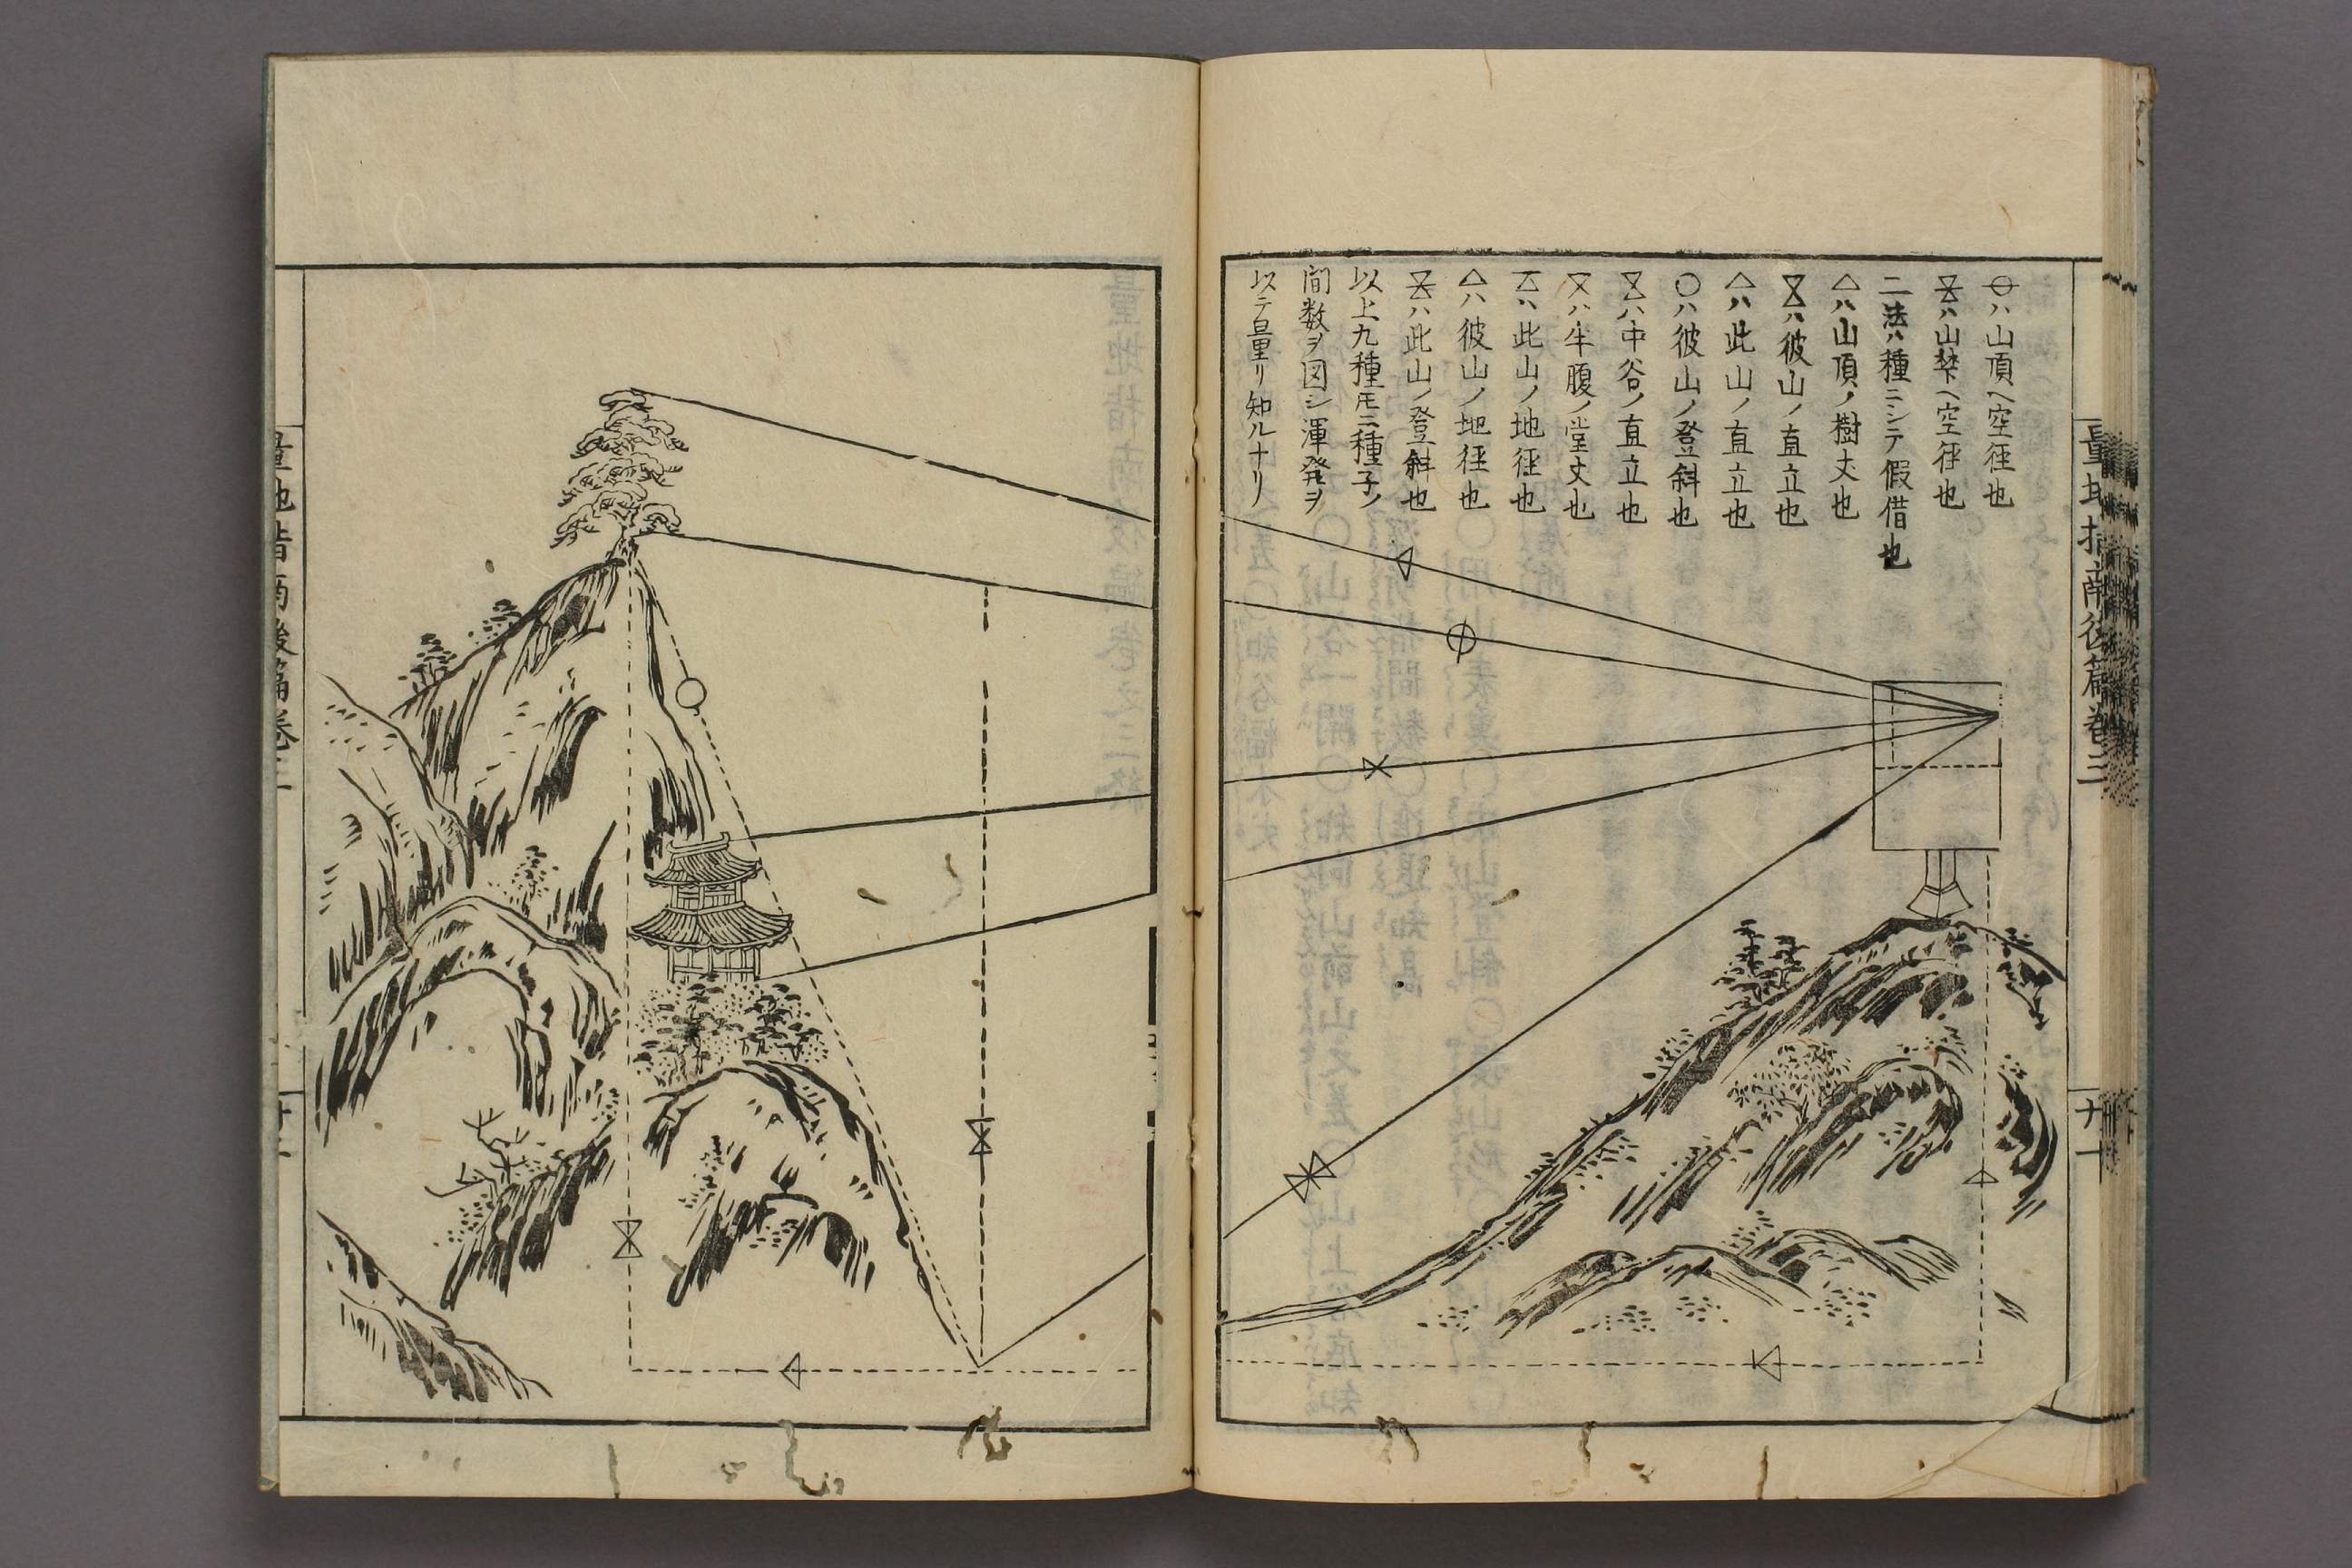 量地指南後篇巻三
ハ山頂ヘ空徑也
ハ山梺ヘ空徑也
二法ハ種ニシテ假借也
△ハ山頂ノ樹丈也
ハ彼山ノ直立也
△ハ此山ノ直立也
○ハ彼山ノ登斜也
ハ中谷ノ直立也
ハ半腹ノ堂丈也
ハ此山ノ地徑也
△ハ彼山ノ地徑也
ハ此山ノ登斜也
以上九種モ二種子ノ
間数ヲ図シ渾発ヲ
以テ量リ知ルナリ
量地指南後篇巻三